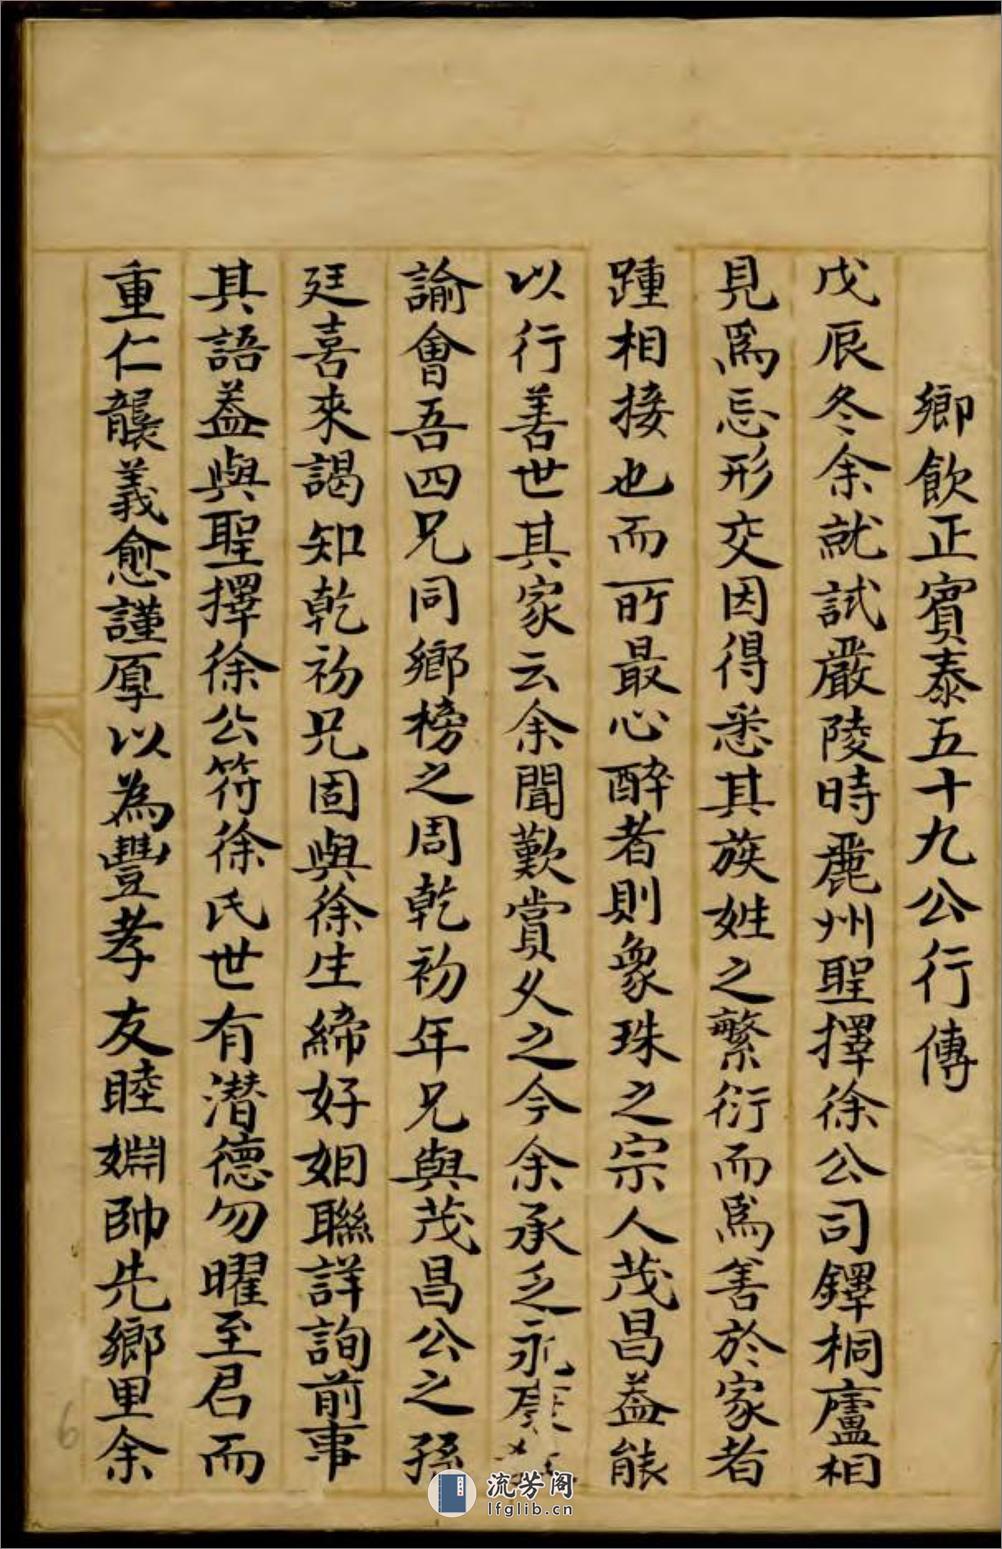 鄉飲正賓泰五十九公行傳
戊辰冬余就試嚴陵時麗州聖擇徐公司鐸桐廬相
見爲忘形交因得悉其族姓之繁衍而爲善於家者
踵相接也而所最心醉者則衆珠之宗人茂昌葢能
以行善世其家云余聞歎賞久之今余承乏永康
諭會吾四兄同鄉榜之周乾初年兄與茂昌公之孫
廷喜來謁知乾初兄固與徐生締好姻聯詳詢前事
其語葢與聖擇徐公符徐氏世有潛德勿曜至君而
重仁襲義愈謹厚以為豐孝友睦婣帥先鄉里余
6
流芳阁
lfglib.cn